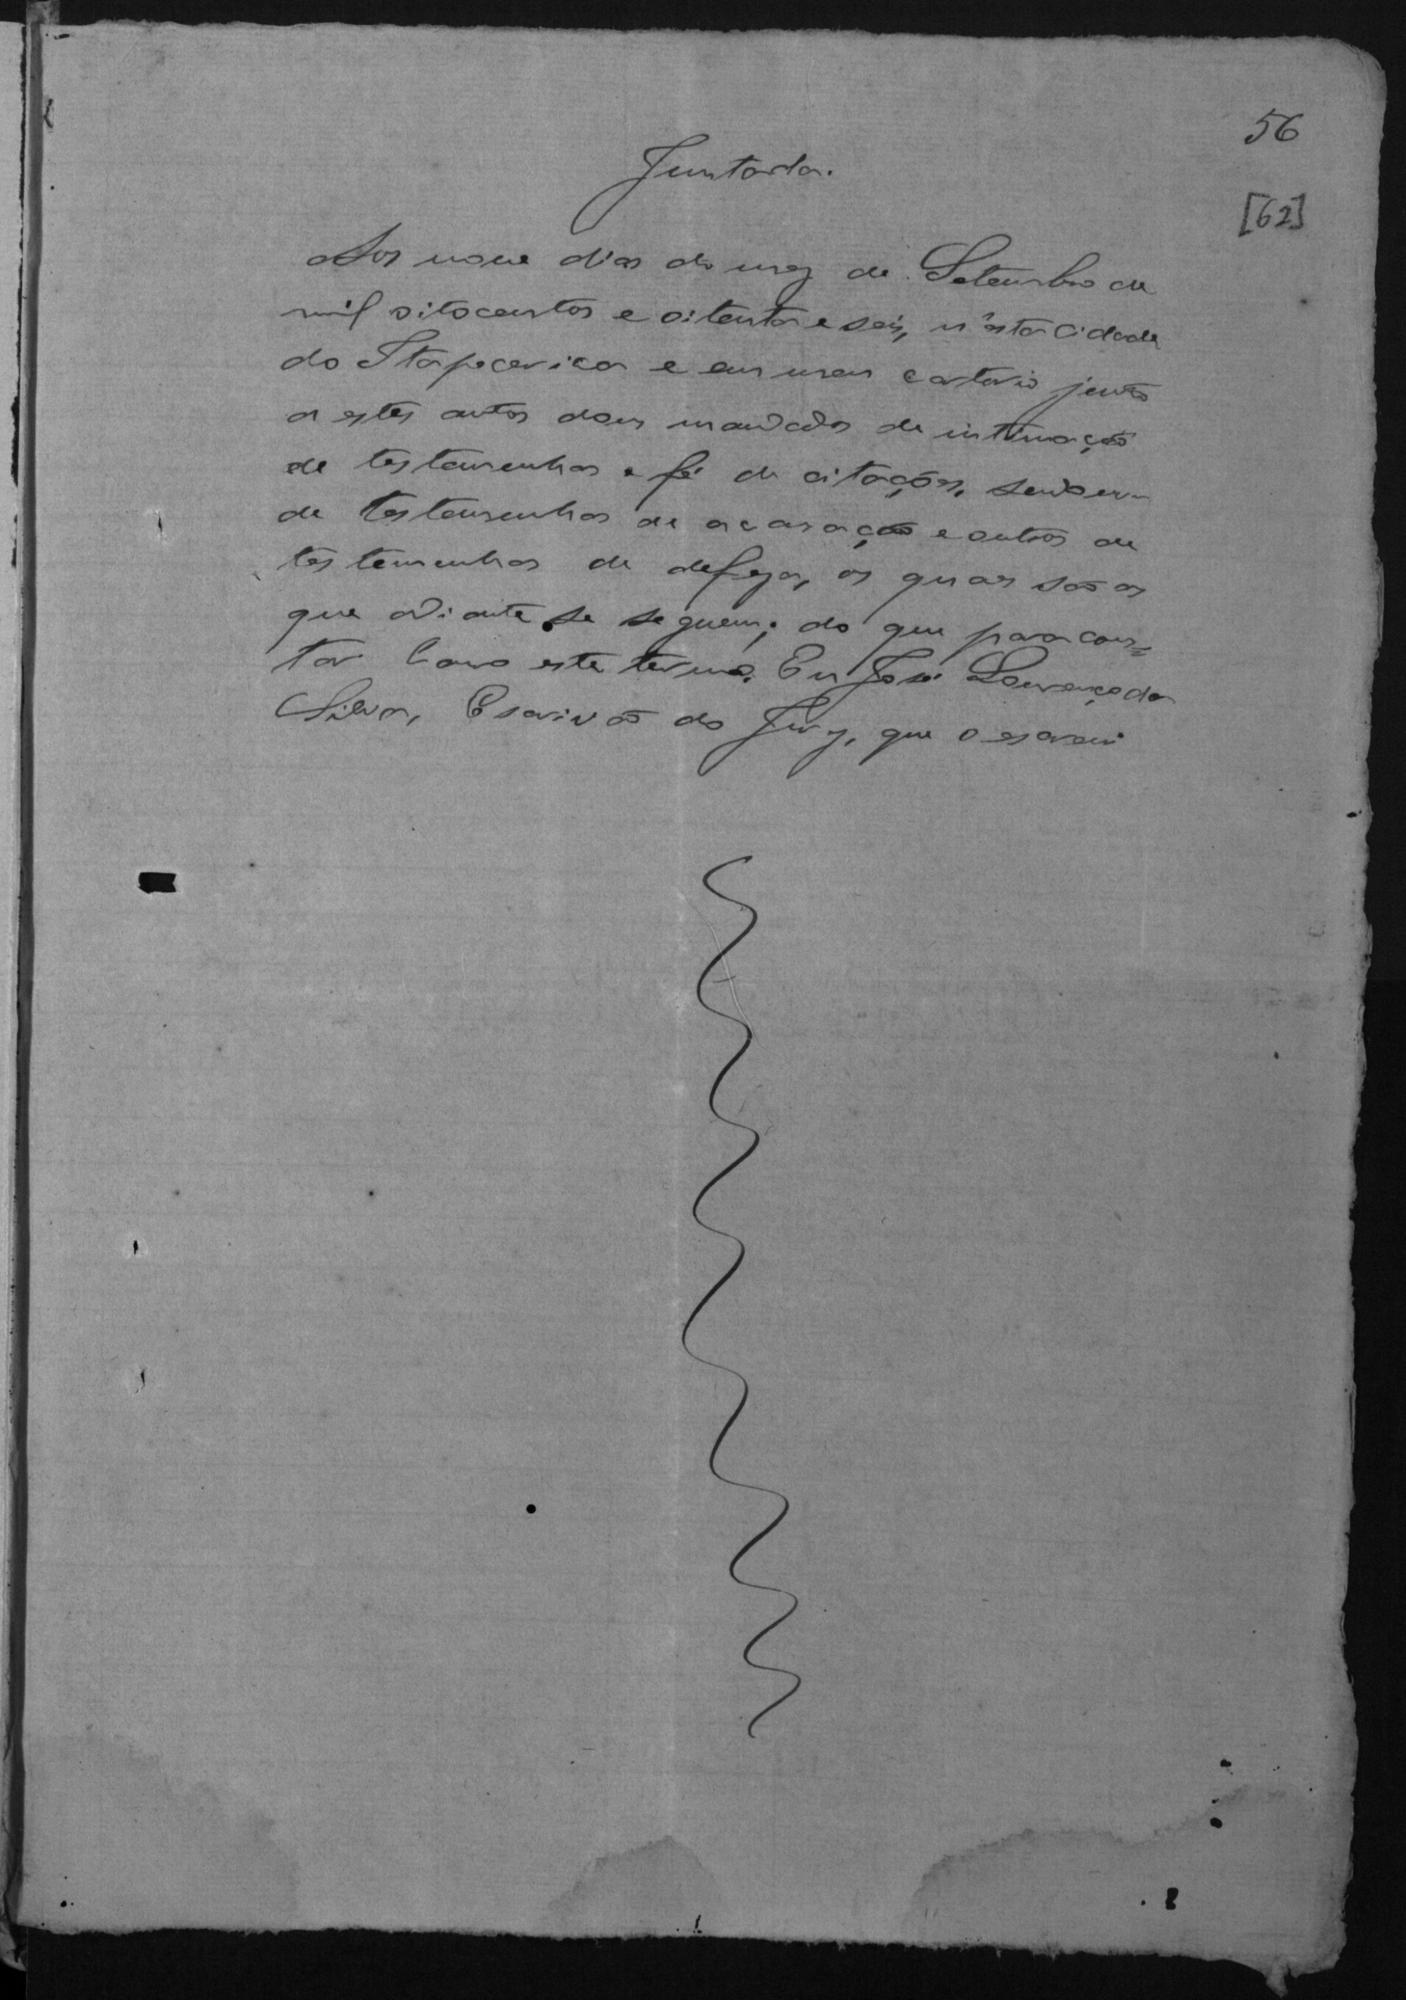 56
[62]
Juntada.
Aos nove dias do mez de Setembro de
mil oitocentos e oitenta e seis, n'esta Cidade
do Itapecerica e em meu cartorio junto
a estes autos dous mandados de intimação
de testemunhas e fé de citações, sendo um
de testemunhas de acusação e outros de
testemunhas de defeza, os quaes são os
que adiante se seguem; do que para cons=
tar lavro este termo. Eu José Lourenço da
Silva, Escrivão do Jury, que o escrevi